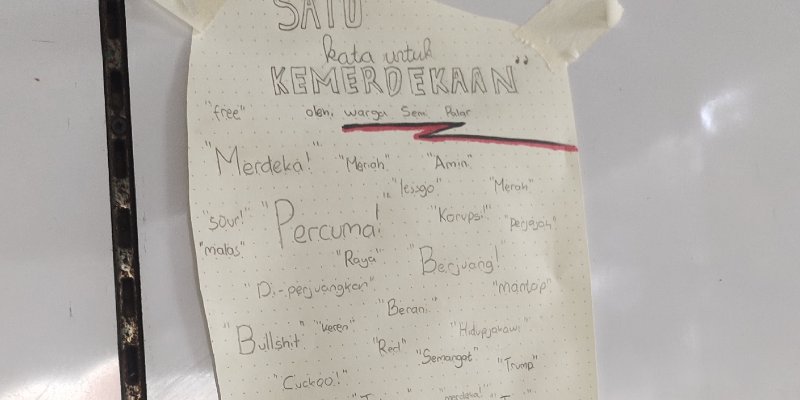 SATU
kata untuk
KEMERDEKAAN"
"free" oleh, warga Sem Palar
"Merdeka!" "Merah" "Amin"
"lessgo" "Merah"
"sour!" "Percuma!" "Korupsi" "penjajah"
"malas" "Raya" "Berjuang!"
"Di-perjuangkan" "mantap"
"Berani"
"Bullshit" "keren" "Hidupjokowi"
"Red" "Semangat" "Trump"
"Cuckoo!"
"merdeka!"